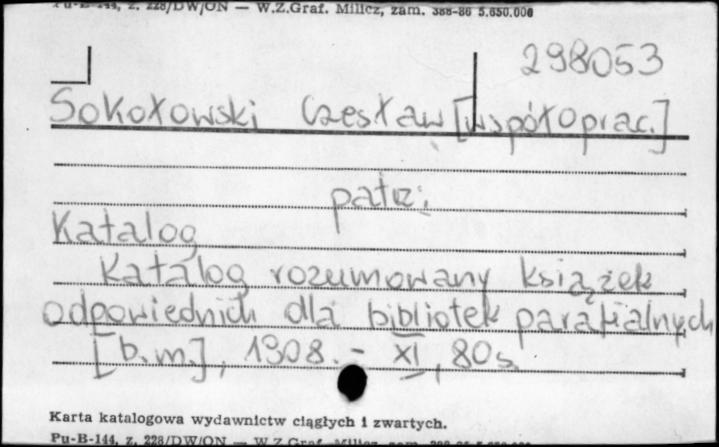 Pu-B-144, z. 228/DW/ON — W.Z.Graf. Milicz, zam. 388-86 5.650.000
298053
Sokołowski Czesław [współoprac.]
patrz:
Katalog
Katalog rozumowany książek
odpowiednich dla bibliotek parafialnych
[b.m.], 1908. - XI, 80 s.
Karta katalogowa wydawnictw ciągłych i zwartych.
Pu-B-144, z. 228/DW/ON — W.Z.Graf. Milicz, zam.